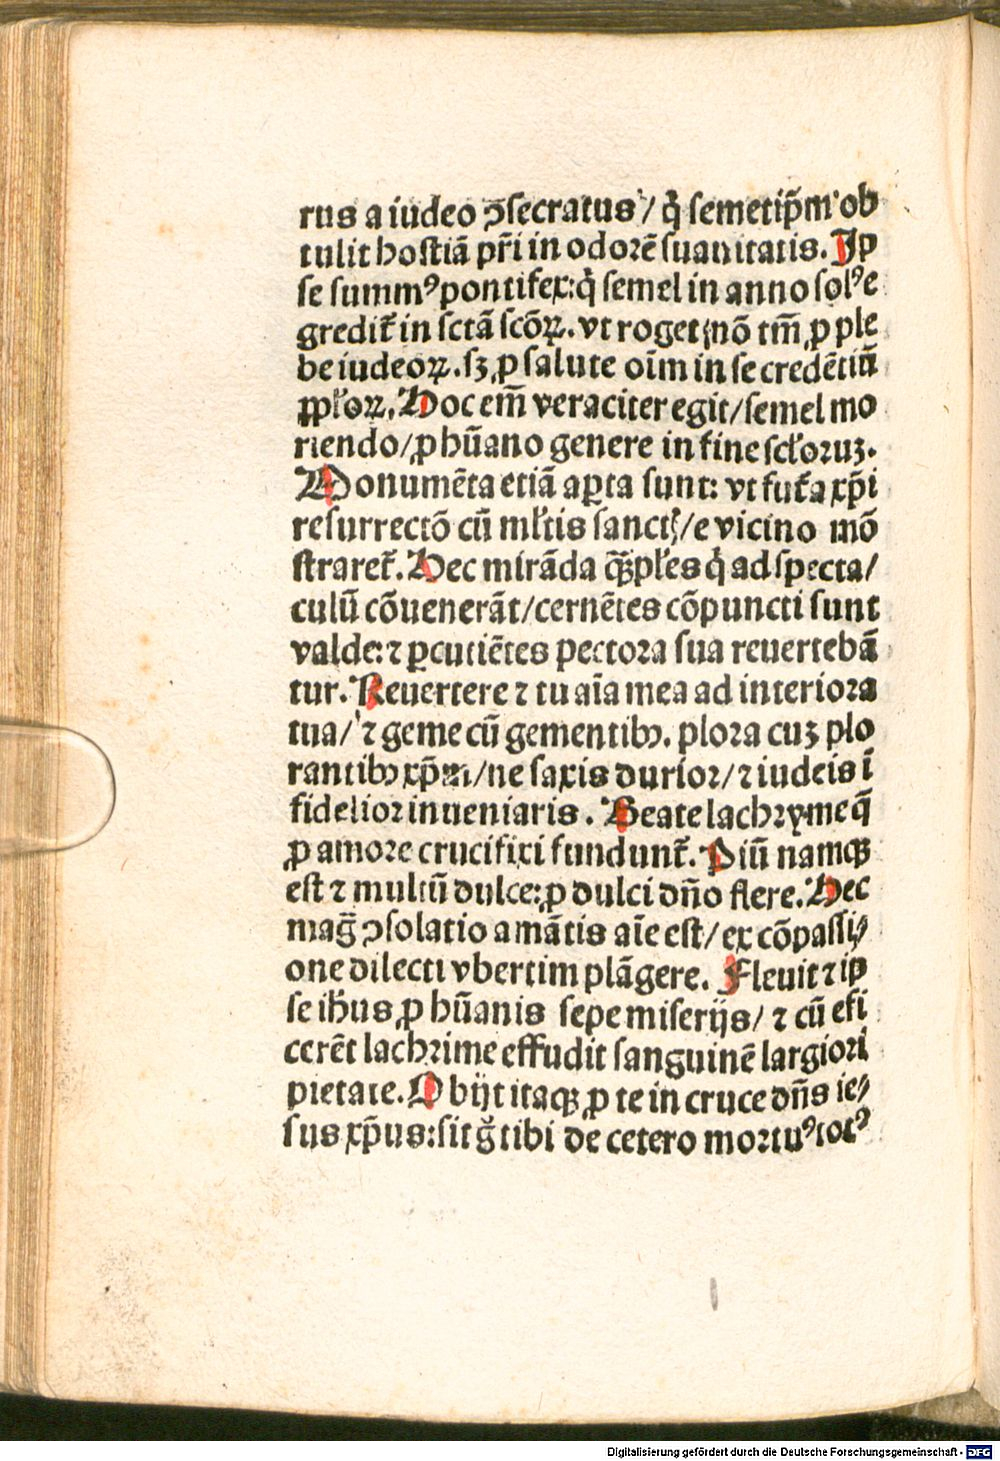 rus a iudeo ↄsecratus / q̇ semetip̄m ob
tulit hostiā pr̄i in odorē suauitatis. Ip
se summꝰ pontifex: q̇ semel in anno solꝰ e
gredit᷑ in sctā scōꝝ. vt roget / nō tm̄ ꝓ ple
be iudeoꝝ. sꝫ ꝓ salute oīm in se credētiū
pp̄loꝝ. Hoc em̄ veraciter egit / semel mo
riendo / ꝓ hūano genere in fine sc̄loruꝫ.
Monumēta etiā aꝑta sunt: vt fut᷑a xp̄i
resurrectō cū ml̄tis sanctꝭ / e vicino mō
straret᷑. Hec mirāda qꝫ pl̄es q̇ ad specta /
culū cōuenerāt / cernētes cōpuncti sunt
valde: ⁊ ꝑcutiētes pectora sua reuertebā
tur. Reuertere ⁊ tu aīa mea ad interiora
tua / ⁊ geme cū gementibꝰ. plora cuꝫ plo
rantibꝰ xp̄m / ne saxis durior / ⁊ iudeis ī
fidelior inueniaris. Beate lachryme q̄
ꝓ amore crucifixi fundunt᷑. Piū namqꝫ
est ⁊ multū dulce: ꝓ dulci dn̄o flere. Hec
maḡ ↄsolatio amātis aīe est / ex cōpassi⸗
one dilecti vbertim plāgere. Fleuit ⁊ ip
se ih̄us ꝓ hūanis sepe miserijs / ⁊ cū efi
cerēt lachrime effudit sanguinē largiori
pietate. Obijt itaqꝫ ꝓ te in cruce dn̄s ie⸗
sus xp̄us: sit g̊ tibi de cetero mortuꝰ totꝰ
Digitalisierung gefördert durch die Deutsche Forschungsgemeinschaft - DFG